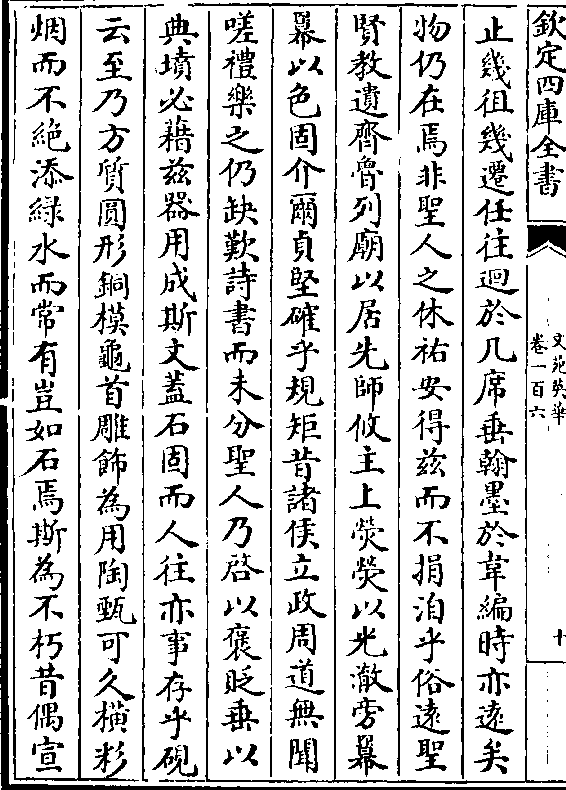 欽定四庫全書
文苑英華
卷一百六
十
止幾徂幾遷任往迴於几席垂翰墨於韋編時亦遠矣
物仍在焉非聖人之休祐安得兹而不捐洎乎俗遠聖
賢教遺齊魯列廟以居先師攸主上熒熒以光澈旁羃
羃以色固介爾貞堅確乎規矩昔諸侯立政周道無聞
嗟禮樂之仍缺歎詩書而未分聖人乃啓以襃貶垂以
典墳必藉兹器用成斯文蓋石固而人往亦事存乎硯
云至乃方質圓形銅模龜首雕飾為用陶甄可久横彩
烟而不絶添緑水而常有豈如石焉斯為不朽昔偶宣